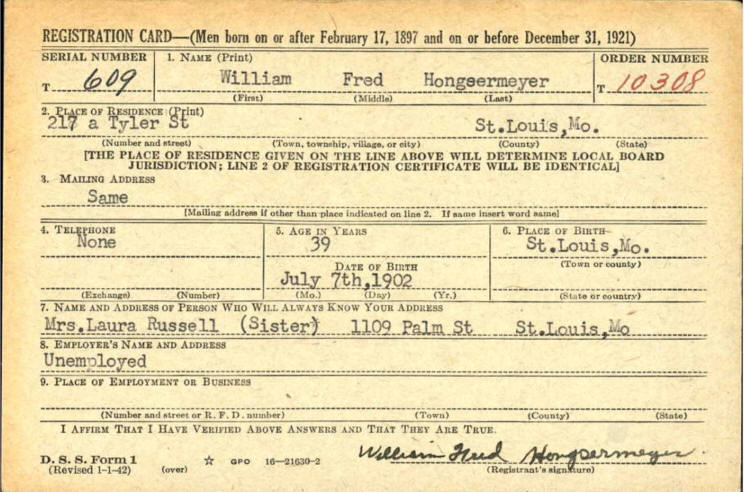 REGISTRATION CARD—(Men born on or after February 17, 1897 and on or before December 31, 1921)
SERIAL NUMBER 1. NAME (Print) ORDER NUMBER
T 609 William Fred Hongsermeyer T 10308
(First) (Middle) (Last)
2. PLACE OF RESIDENCE (Print)
217 a Tyler St St.Louis,Mo.
(Number and street) (Town, township, village, or city) (County) (State)
[THE PLACE OF RESIDENCE GIVEN ON THE LINE ABOVE WILL DETERMINE LOCAL BOARD
JURISDICTION; LINE 2 OF REGISTRATION CERTIFICATE WILL BE IDENTICAL]
3. MAILING ADDRESS
Same
[Mailing address if other than place indicated on line 2. If same insert word same]
4. TELEPHONE 5. AGE IN YEARS 6. PLACE OF BIRTH
None 39 St.Louis,Mo.
(Town or county)
DATE OF BIRTH
July 7th,1902
(Exchange) (Number) (Mo.) (Day) (Yr.) (State or country)
7. NAME AND ADDRESS OF PERSON WHO WILL ALWAYS KNOW YOUR ADDRESS
Mrs.Laura Russell (Sister) 1109 Palm St St.Louis,Mo
8. EMPLOYER'S NAME AND ADDRESS
Unemployed
9. PLACE OF EMPLOYMENT OR BUSINESS
(Number and street or R. F. D. number) (Town) (County) (State)
I AFFIRM THAT I HAVE VERIFIED ABOVE ANSWERS AND THAT THEY ARE TRUE.
D. S. S. Form 1
(Revised 1-1-42) (over) ☆ GPO 16—21630-2 William Fred Hongsermeyer.
(Registrant's signature)